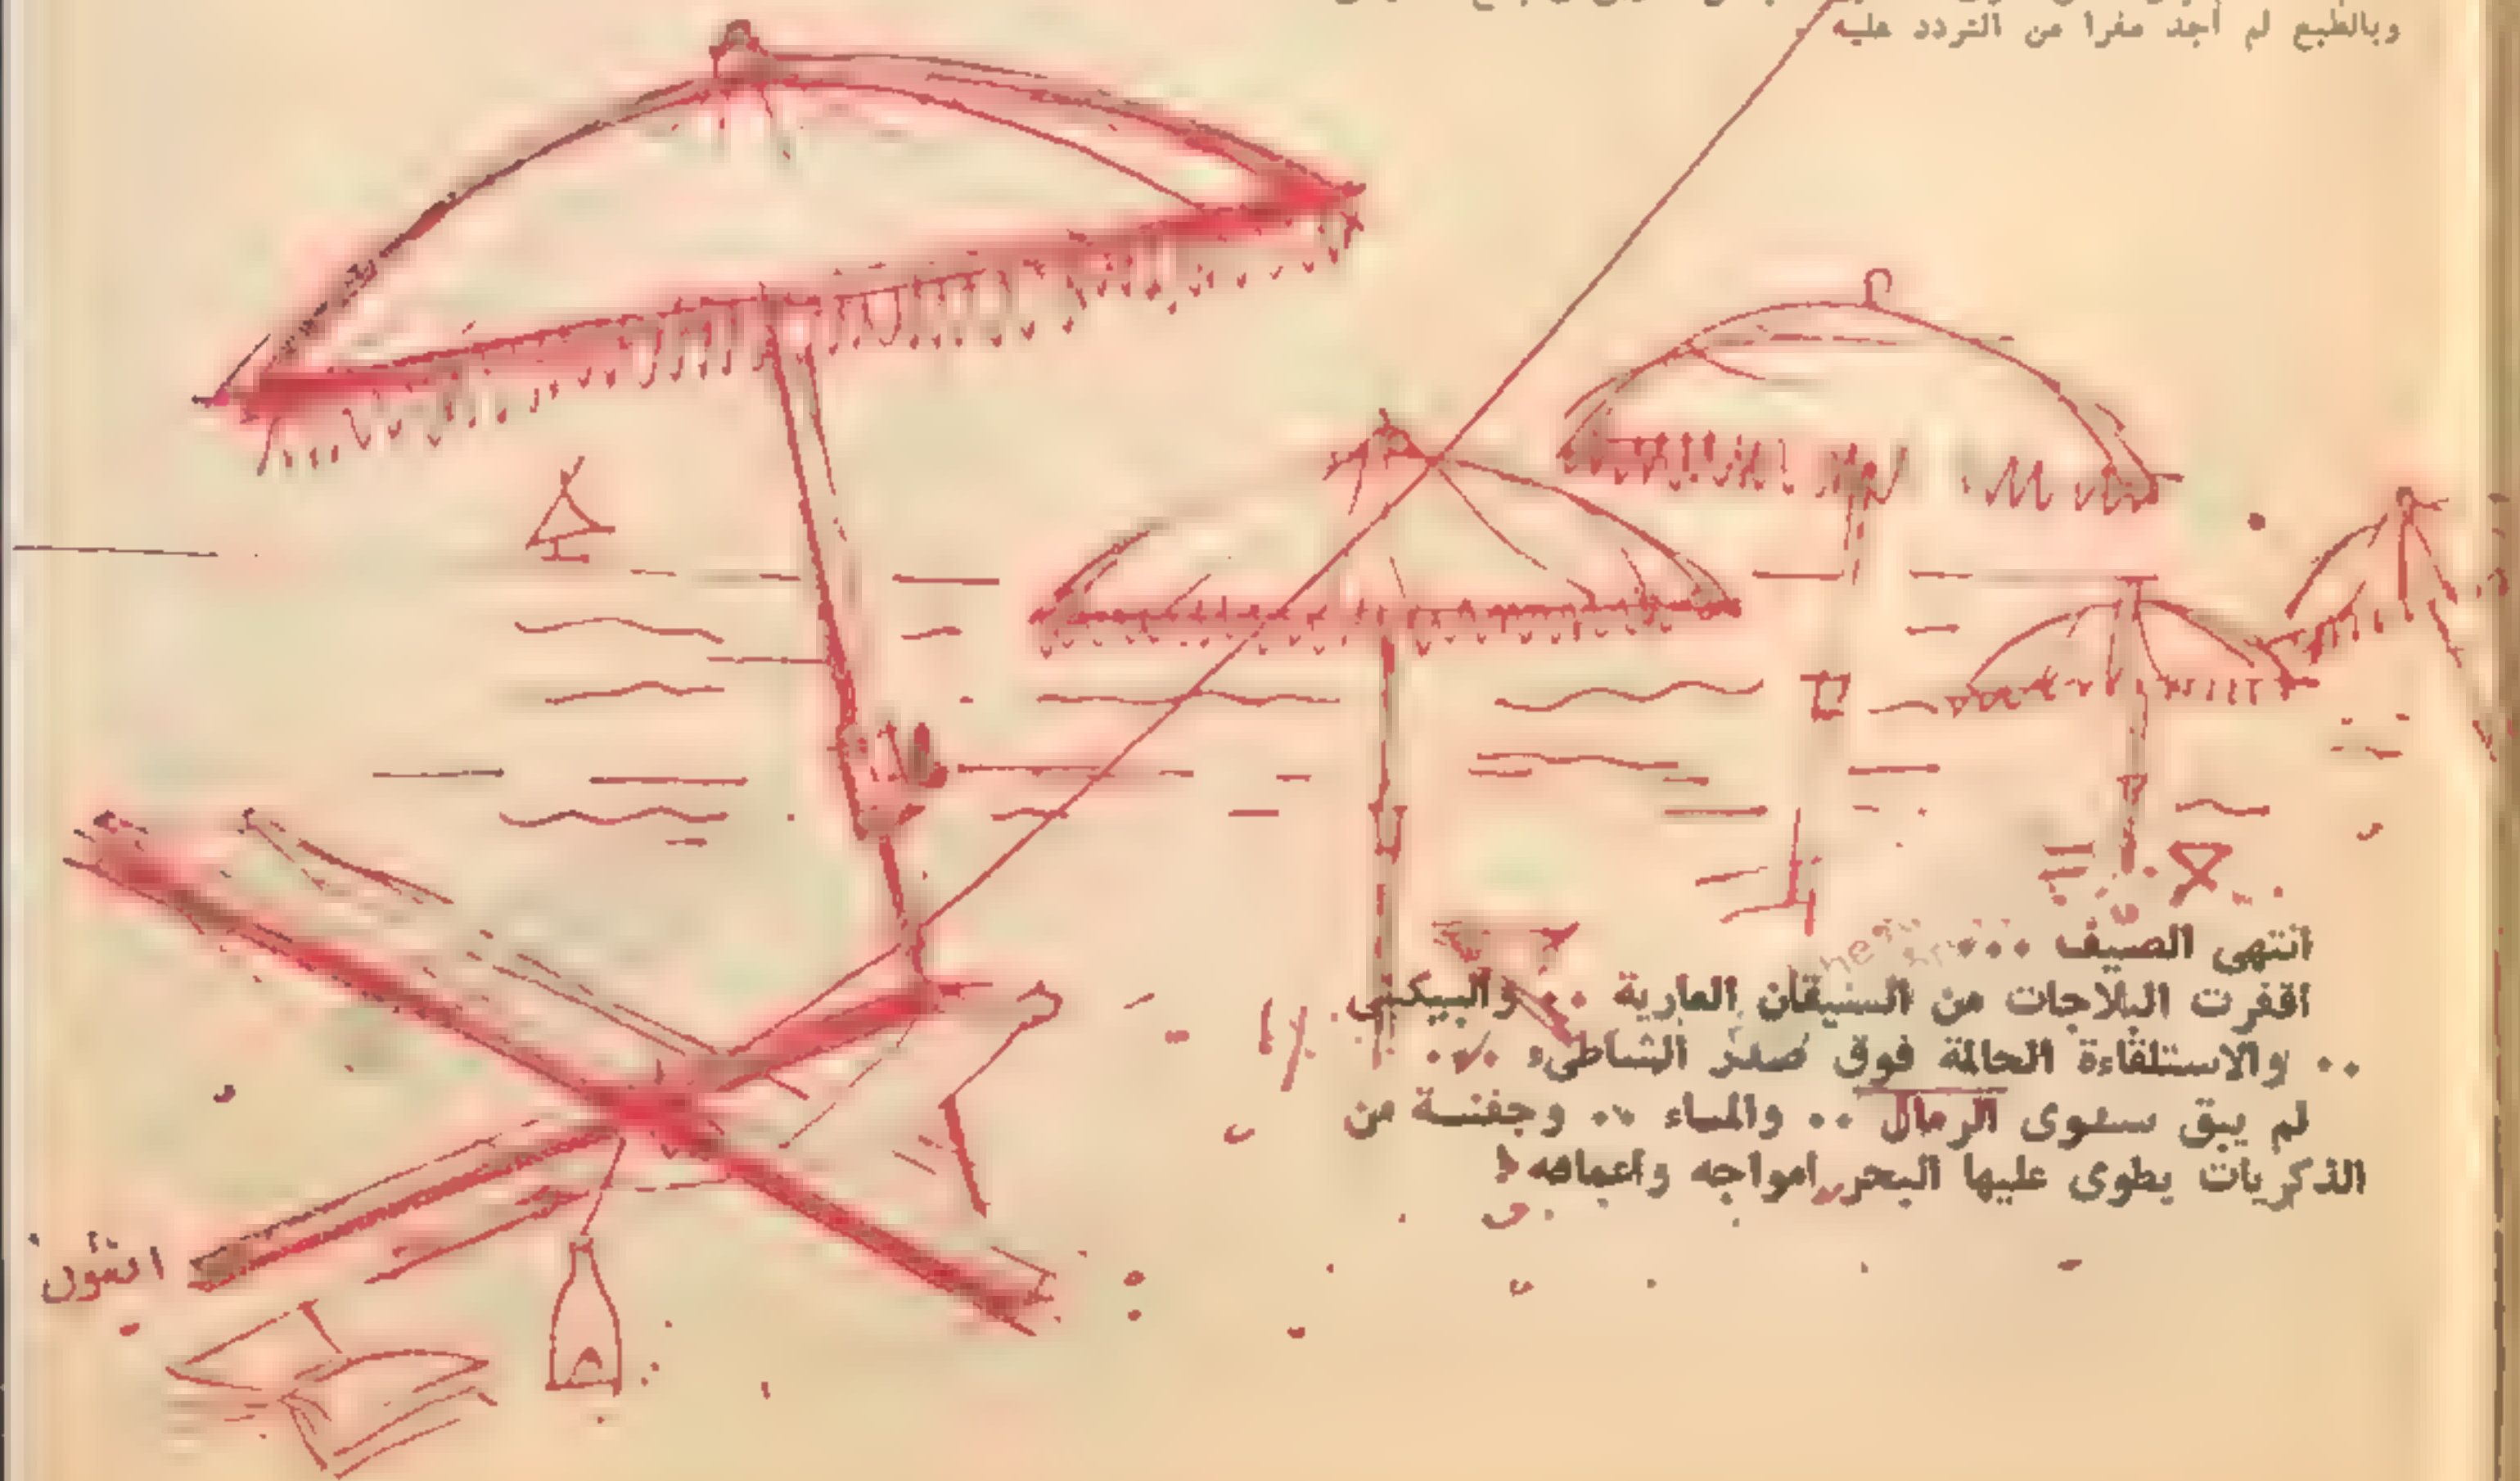 وبالطبع لم أجد مفرا من التردد عليه
انتهى الصيف ...
اقفرت البلاجات من السيقان العارية .. والبيكينى
.. والاستلقاءة الحالمة فوق صدر الشاطىء ...
لم يبق سوى الرمال .. والماء .. وجفنة من
الذكريات يطوى عليها البحر امواجه واعماقه !